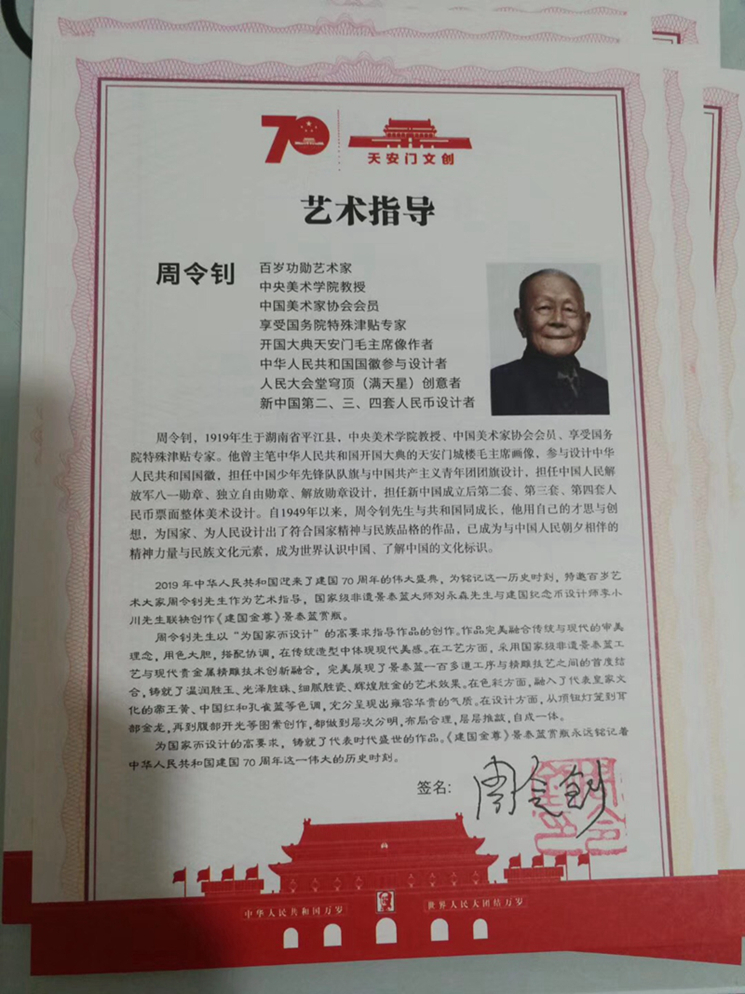 70
天安门文创
艺术指导
周令钊
百岁功勋艺术家
中央美术学院教授
中国美术家协会会员
享受国务院特殊津贴专家
开国大典天安门毛主席像作者
中华人民共和国国徽参与设计者
人民大会堂穹顶（满天星）创意者
新中国第二、三、四套人民币设计者
周令钊，1919年生于湖南省平江县，中央美术学院教授、中国美术家协会会员、享受国务
院特殊津贴专家。他曾主笔中华人民共和国开国大典的天安门城楼毛主席画像，参与设计中华
人民共和国国徽，担任中国少年先锋队队旗与中国共产主义青年团团旗设计，担任中国人民解
放军八一勋章、独立自由勋章、解放勋章设计，担任新中国成立后第二套、第三套、第四套人
民币票面整体美术设计。自1949年以来，周令钊先生与共和国同成长，他用自己的才思与创
想，为国家、为人民设计出了符合国家精神与民族品格的作品，已成为与中国人民朝夕相伴的
精神力量与民族文化元素，成为世界认识中国、了解中国的文化标识。
2019年中华人民共和国迎来了建国70周年的伟大盛典，为铭记这一历史时刻，特邀百岁艺
术大家周令钊先生作为艺术指导，国家级非遗景泰蓝大师刘永森先生与建国纪念币设计师李小
川先生联袂创作《建国金尊》景泰蓝赏瓶。
周令钊先生以“为国家而设计”的高要求指导作品的创作。作品完美融合传统与现代的审美
理念，用色大胆，搭配协调，在传统造型中体现现代美感。在工艺方面，采用国家级非遗景泰蓝工
艺与现代贵金属精雕技术创新融合，完美展现了景泰蓝一百多道工序与精雕技艺之间的首度结
合，铸就了温润胜玉、光泽胜珠、细腻胜瓷、辉煌胜金的艺术效果。在色彩方面，融入了代表皇家文
化的帝王黄、中国红和孔雀蓝等色调，充分呈现出雍容华贵的气质。在设计方面，从项钮灯笼到耳
部金龙，再到腹部开光等图案创作，都做到层次分明，布局合理，层层推敲，自成一体。
为国家而设计的高要求，铸就了代表时代盛世的作品。《建国金尊》景泰蓝赏瓶永远铭记着
中华人民共和国建国70周年这一伟大的历史时刻。
签名：周令钊
中华人民共和国万岁
世界人民大团结万岁